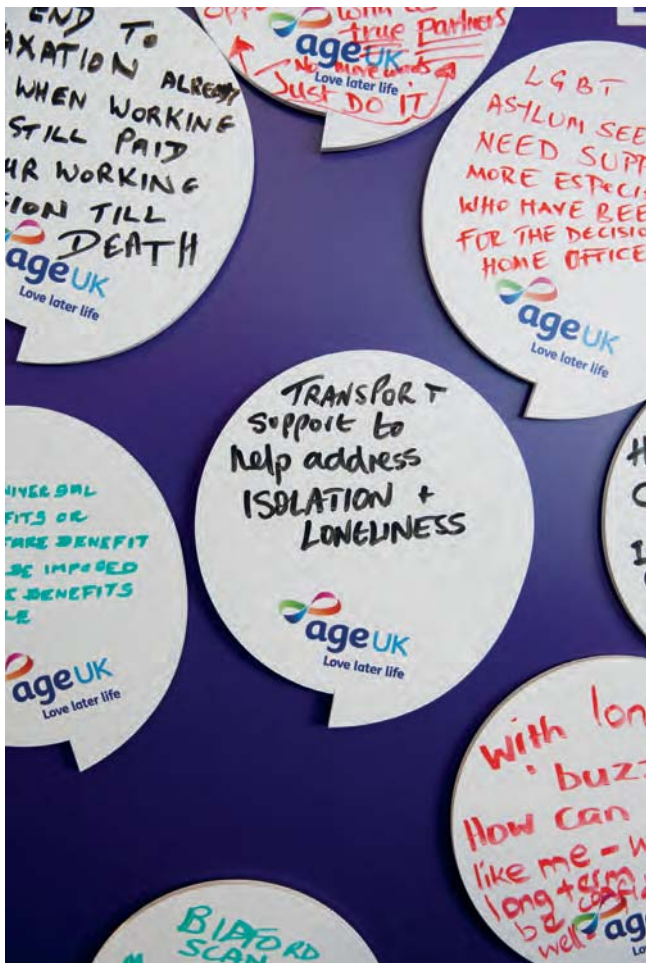 END TO
AXATION ALREADY
WHEN WORKING
STILL PAID
UR WORKING
ION TILL
DEATH
age UK
Love later life
with
true partners
age UK
Love later life
No more words
Just DO IT
LGBT
ASYLUM SEE
NEED SUPP
MORE ESPECI
WHO HAVE BEE
FOR THE DECISIO
HOME OFFICE
age UK
Love later life
TRANSPORT
Support to
help address
ISOLATION +
LONELINESS
age UK
Love later life
NIVERSAL
FITS OR
TARE BENEFIT
BE IMPOSED
E BENEFITS
LE
age UK
Love later life
H
C
I
with lon
buzz
How can
like me - w
long term
be
well
ag
Lo
BIDFORD
SCAN